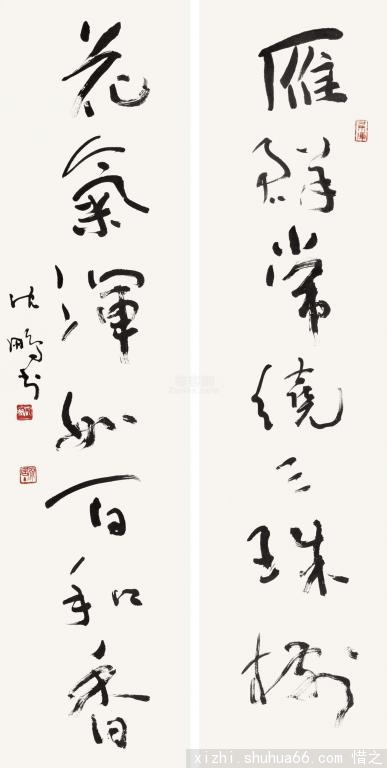 雁群常繞三珠樹
花氣渾如百和香
沈鵬書
xizhi.shuhua66.com 惜之